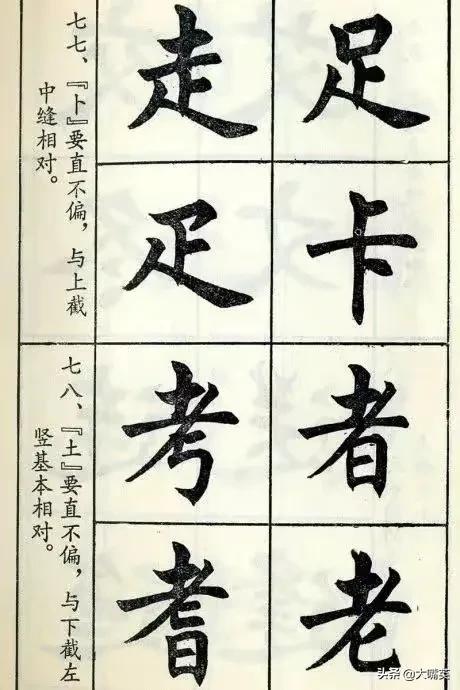 足
卡
走
疋
七七、『卜』要直不偏，与上截
中缝相对。
者
老
考
耆
七八、『土』要直不偏，与下截左
竖基本相对。
头条 @大嘴英